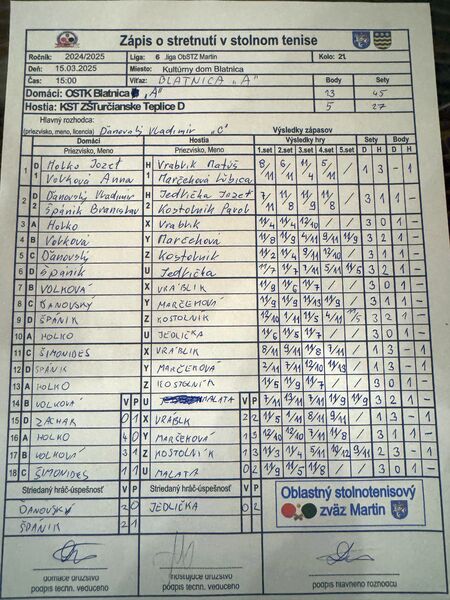 Zápis o stretnutí v stolnom tenise
Ročník: 2024/2025 Liga: 6 .liga ObSTZ Martin Kolo: 21.
Deň: 15.03.2025 Miesto: Kultúrny dom Blatnica
Čas: 15:00 Víťaz: BLATNICA "A" Body Sety
Domáci: OSTK Blatnica "A" 13 45
Hostia: KST ZŠTurčianske Teplice D 5 27
Hlavný rozhodca:
(priezvisko, meno, licencia) Ďanovský Vladimír "C"
Domáci Hostia Výsledky zápasov
Priezvisko, Meno Priezvisko, Meno Výsledky hry Sety Body
1.set 2.set 3.set 4.set 5.set D H D H
1 D1 Holko Jozef H1 Vráblik Matúš 8/11 6/11 11/4 5/11 / 1 3 - 1
Volková Anna Marčeková Ľubica
2 D2 Ďanovský Vladimír H2 Jedlička Jozef 7/11 11/8 11/8 11/9 / 3 1 1 -
Špánik Branislav Kostolník Pavol
3 A Holko X Vráblik 11/4 11/4 12/10 / / 3 0 1 -
4 B Volková Y Marčeková 11/8 11/9 4/11 9/11 11/9 3 2 1 -
5 C Ďanovský Z Kostolník 11/2 11/4 9/11 12/10 / 3 1 1 -
6 D Špánik U Jedlička 11/7 11/7 7/11 5/11 11/5 3 2 1 -
7 B VOLKOVÁ X VRÁBLIK 11/9 11/6 11/7 / / 3 0 1 -
8 C ĎANOVSKÝ Y MARČEKOVÁ 11/9 11/9 11/13 11/9 / 3 1 1 -
9 D ŠPÁNIK Z KOSTOLNIK 12/10 1/11 11/5 4/11 11/5 3 2 1 -
10 A HOLKO U JEDLIČKA 11/6 11/5 11/7 / / 3 0 1 -
11 C ŠIMONIDES X VRÁBLIK 8/11 9/11 11/8 7/11 / 1 3 - 1
12 D ŠPÁNIK Y MARČEKOVÁ 2/11 7/11 13/10 11/13 / 1 3 - 1
13 A HOLKO Z KOSTOLNÍK 11/5 11/9 11/7 / / 3 0 1 -
14 B VOLKOVÁ V P U MALATA V P
15 D ZACHAR 0 1 X VRÁBLIK 2 2 11/5 1/11 8/11 9/11 / 1 3 - 1
16 A HOLKO 4 0 Y MARČEKOVÁ 1 3 12/10 12/10 7/11 11/8 / 3 1 1 -
17 B VOLKOVÁ 3 1 Z KOSTOLNÍK
18 C ŠIMONIDES 1 1 U MALATA 0 2 11/9 11/5 11/8 / / 3 0 1 -
Striedaný hráč-úspešnosť V P Striedaný hráč-úspešnosť V P
ĎANOVSKÝ 2 0 JEDLIČKA 0 2
ŠPÁNIK 2 1
Oblastný stolnotenisový
zväz Martin
domáce družstvo hosťujúce družstvo
podpis techn. vedúceho podpis techn. vedúceho podpis hlavného rozhodcu